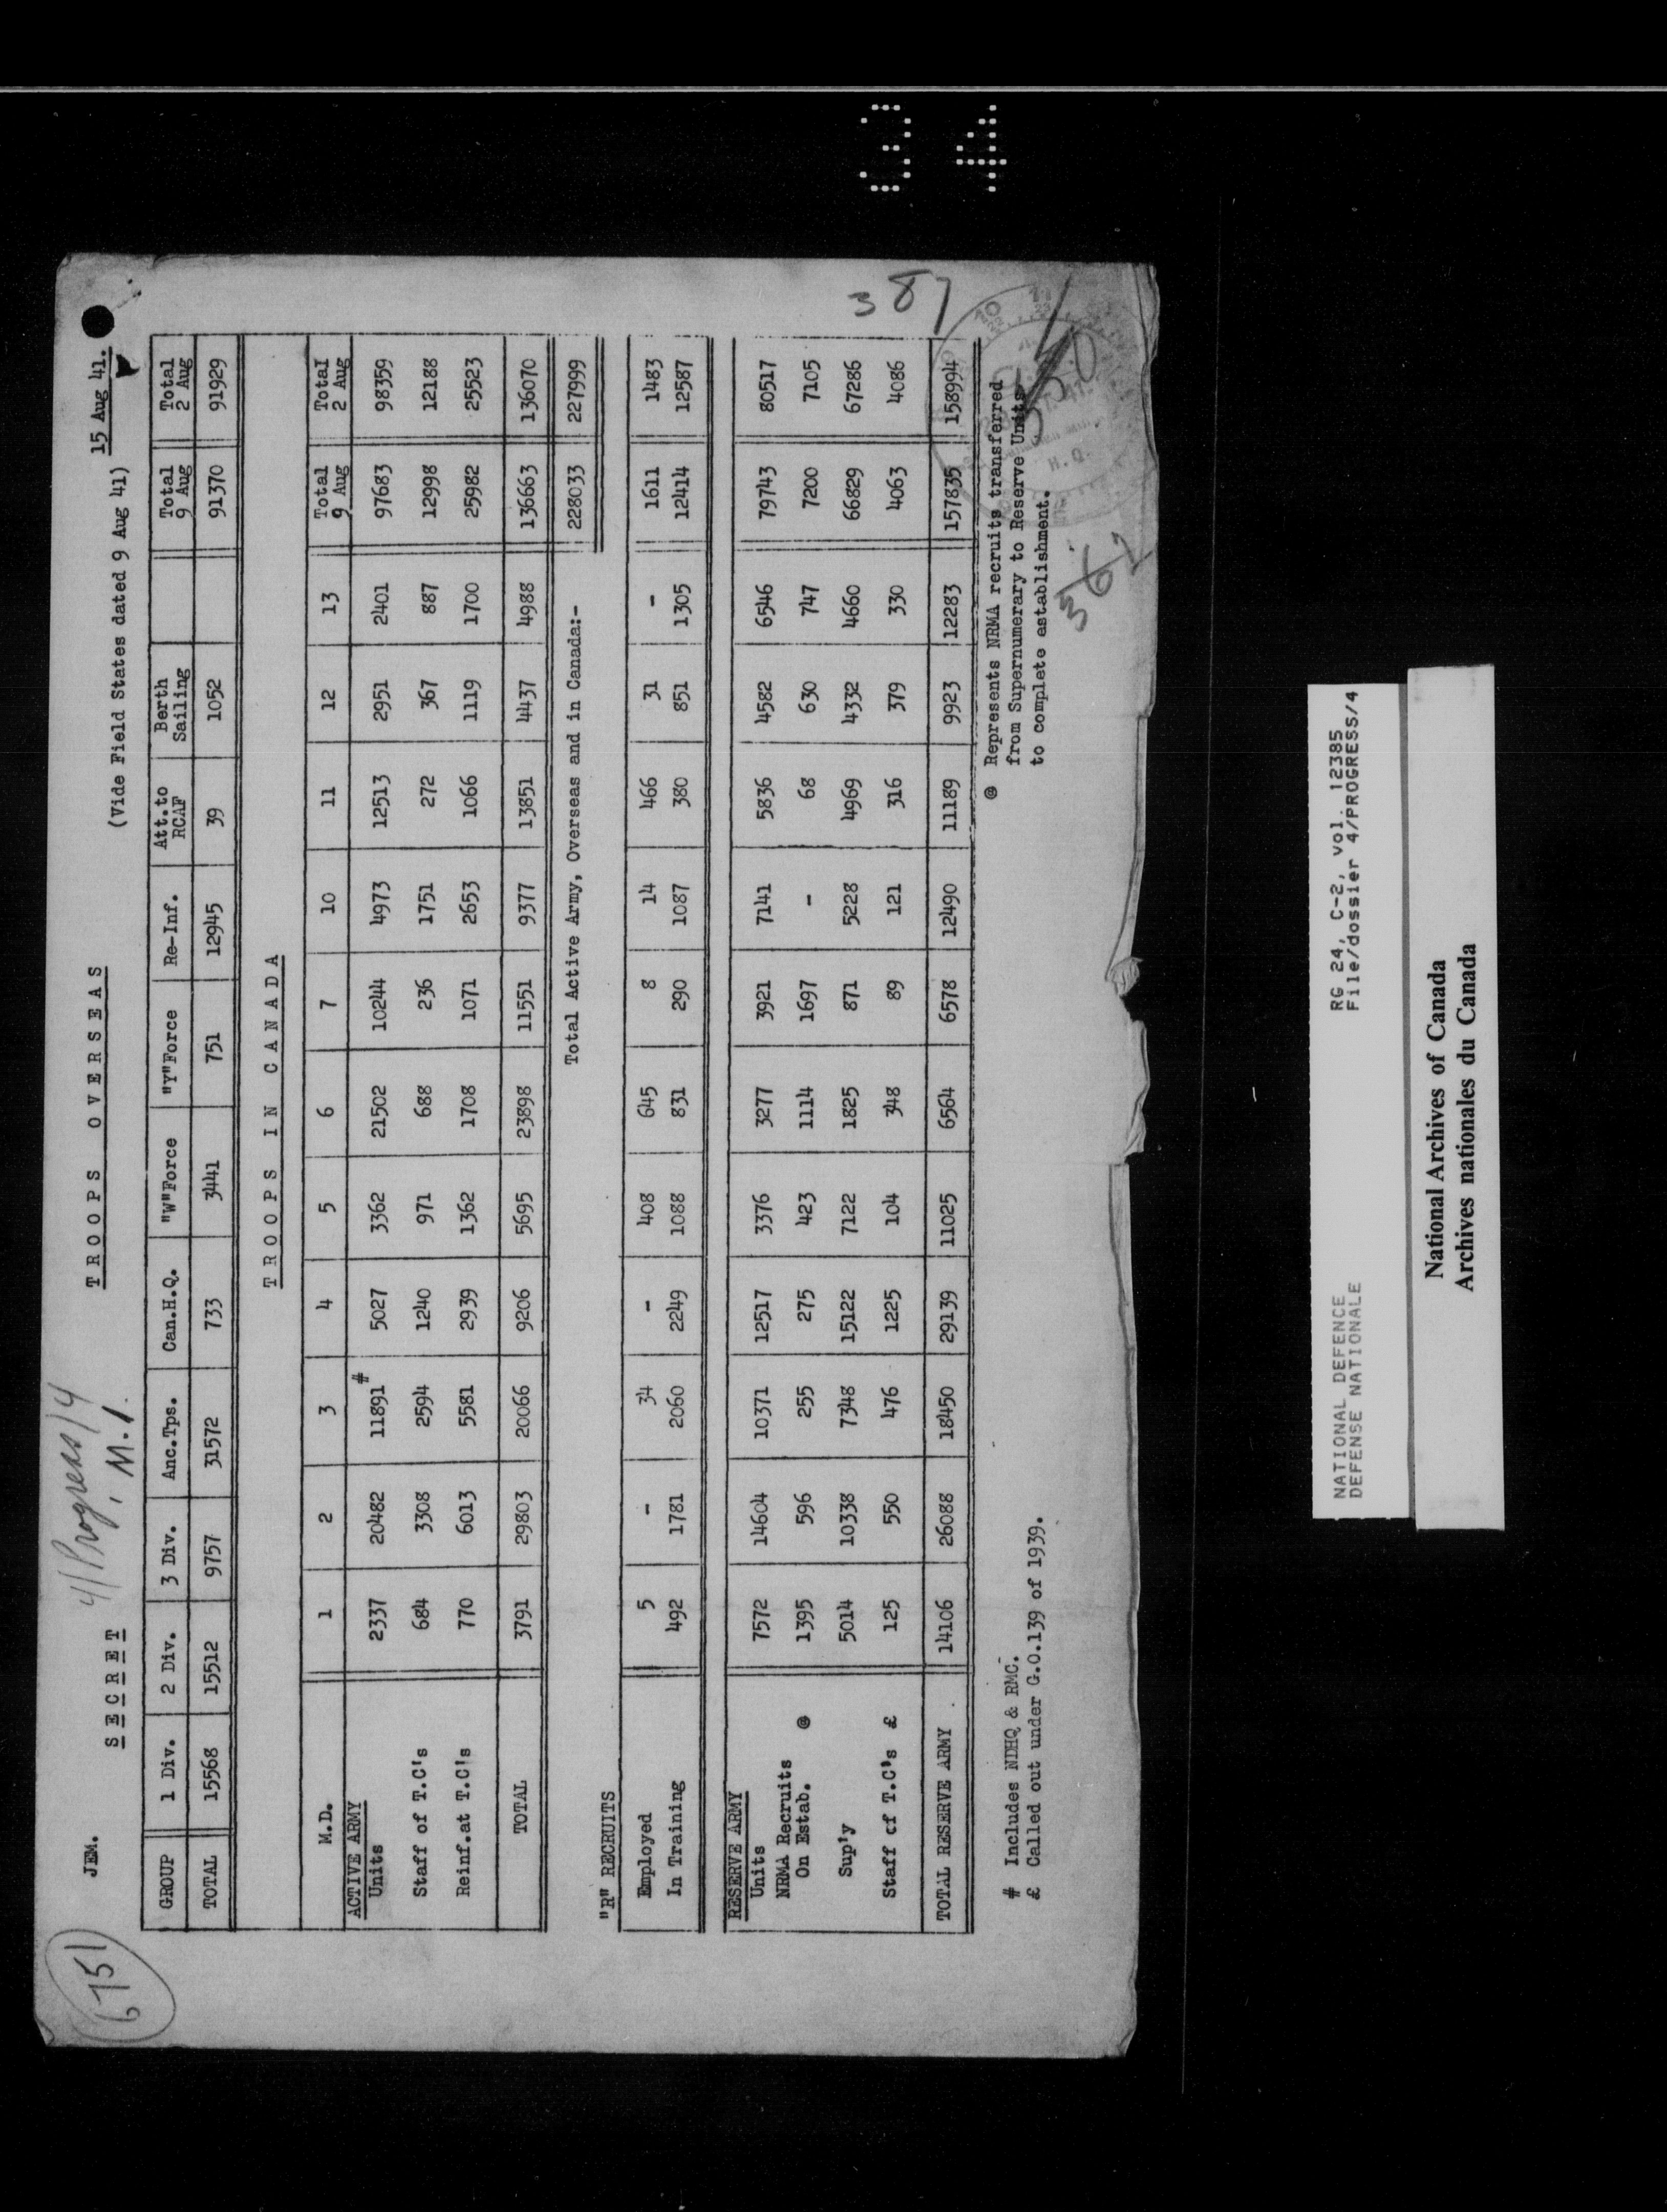 34
6751
JEM.
4/Progress/4
, M.1.
SECRET
TROOPS OVERSEAS
15 Aug 41.
(Vide Field States dated 9 Aug 41)
GROUP 1 Div. 2 Div. 3 Div. Anc.Tps. Can.H.Q. "W"Force "Y"Force Re-Inf. Att.to RCAF Berth Sailing Total 9 Aug Total 2 Aug
TOTAL 15568 15512 9757 31572 733 3441 751 12945 39 1052 91370 91929
TROOPS IN CANADA
M.D. 1 2 3 4 5 6 7 10 11 12 13 Total 9 Aug Total 2 Aug
ACTIVE ARMY
Units 2337 20482 11891 # 5027 3362 21502 10244 4973 12513 2951 2401 97683 98359
Staff of T.C's 684 3308 2594 1240 971 688 236 1751 272 367 887 12998 12188
Reinf.at T.C's 770 6013 5581 2939 1362 1708 1071 2653 1066 1119 1700 25982 25523
TOTAL 3791 29803 20066 9206 5695 23898 11551 9377 13851 4437 4988 136663 136070
Total Active Army, Overseas and in Canada:- 228033 227999
"R" RECRUITS
Employed 5 - 34 - 408 645 8 14 466 31 - 1611 1483
In Training 492 1781 2060 2249 1088 831 290 1087 380 851 1305 12414 12587
RESERVE ARMY
Units 7572 14604 10371 12517 3376 3277 3921 7141 5836 4582 6546 79743 80517
NRMA Recruits
On Estab. @ 1395 596 255 275 423 1114 1697 - 68 630 747 7200 7105
Sup'y 5014 10338 7348 15122 7122 1825 871 5228 4969 4332 4660 66829 67286
Staff of T.C's £ 125 550 476 1225 104 348 89 121 316 379 330 4063 4086
TOTAL RESERVE ARMY 14106 26088 18450 29139 11025 6564 6578 12490 11189 9923 12283 157835 158994
# Includes NDHQ & RMC.
£ Called out under G.O.139 of 1939.
@ Represents NRMA recruits transferred
from Supernumerary to Reserve Units
to complete establishment.
387
362
H.Q.
NATIONAL DEFENCE RG 24, C-2, vol. 12385
DEFENSE NATIONALE File/dossier 4/PROGRESS/4
National Archives of Canada
Archives nationales du Canada